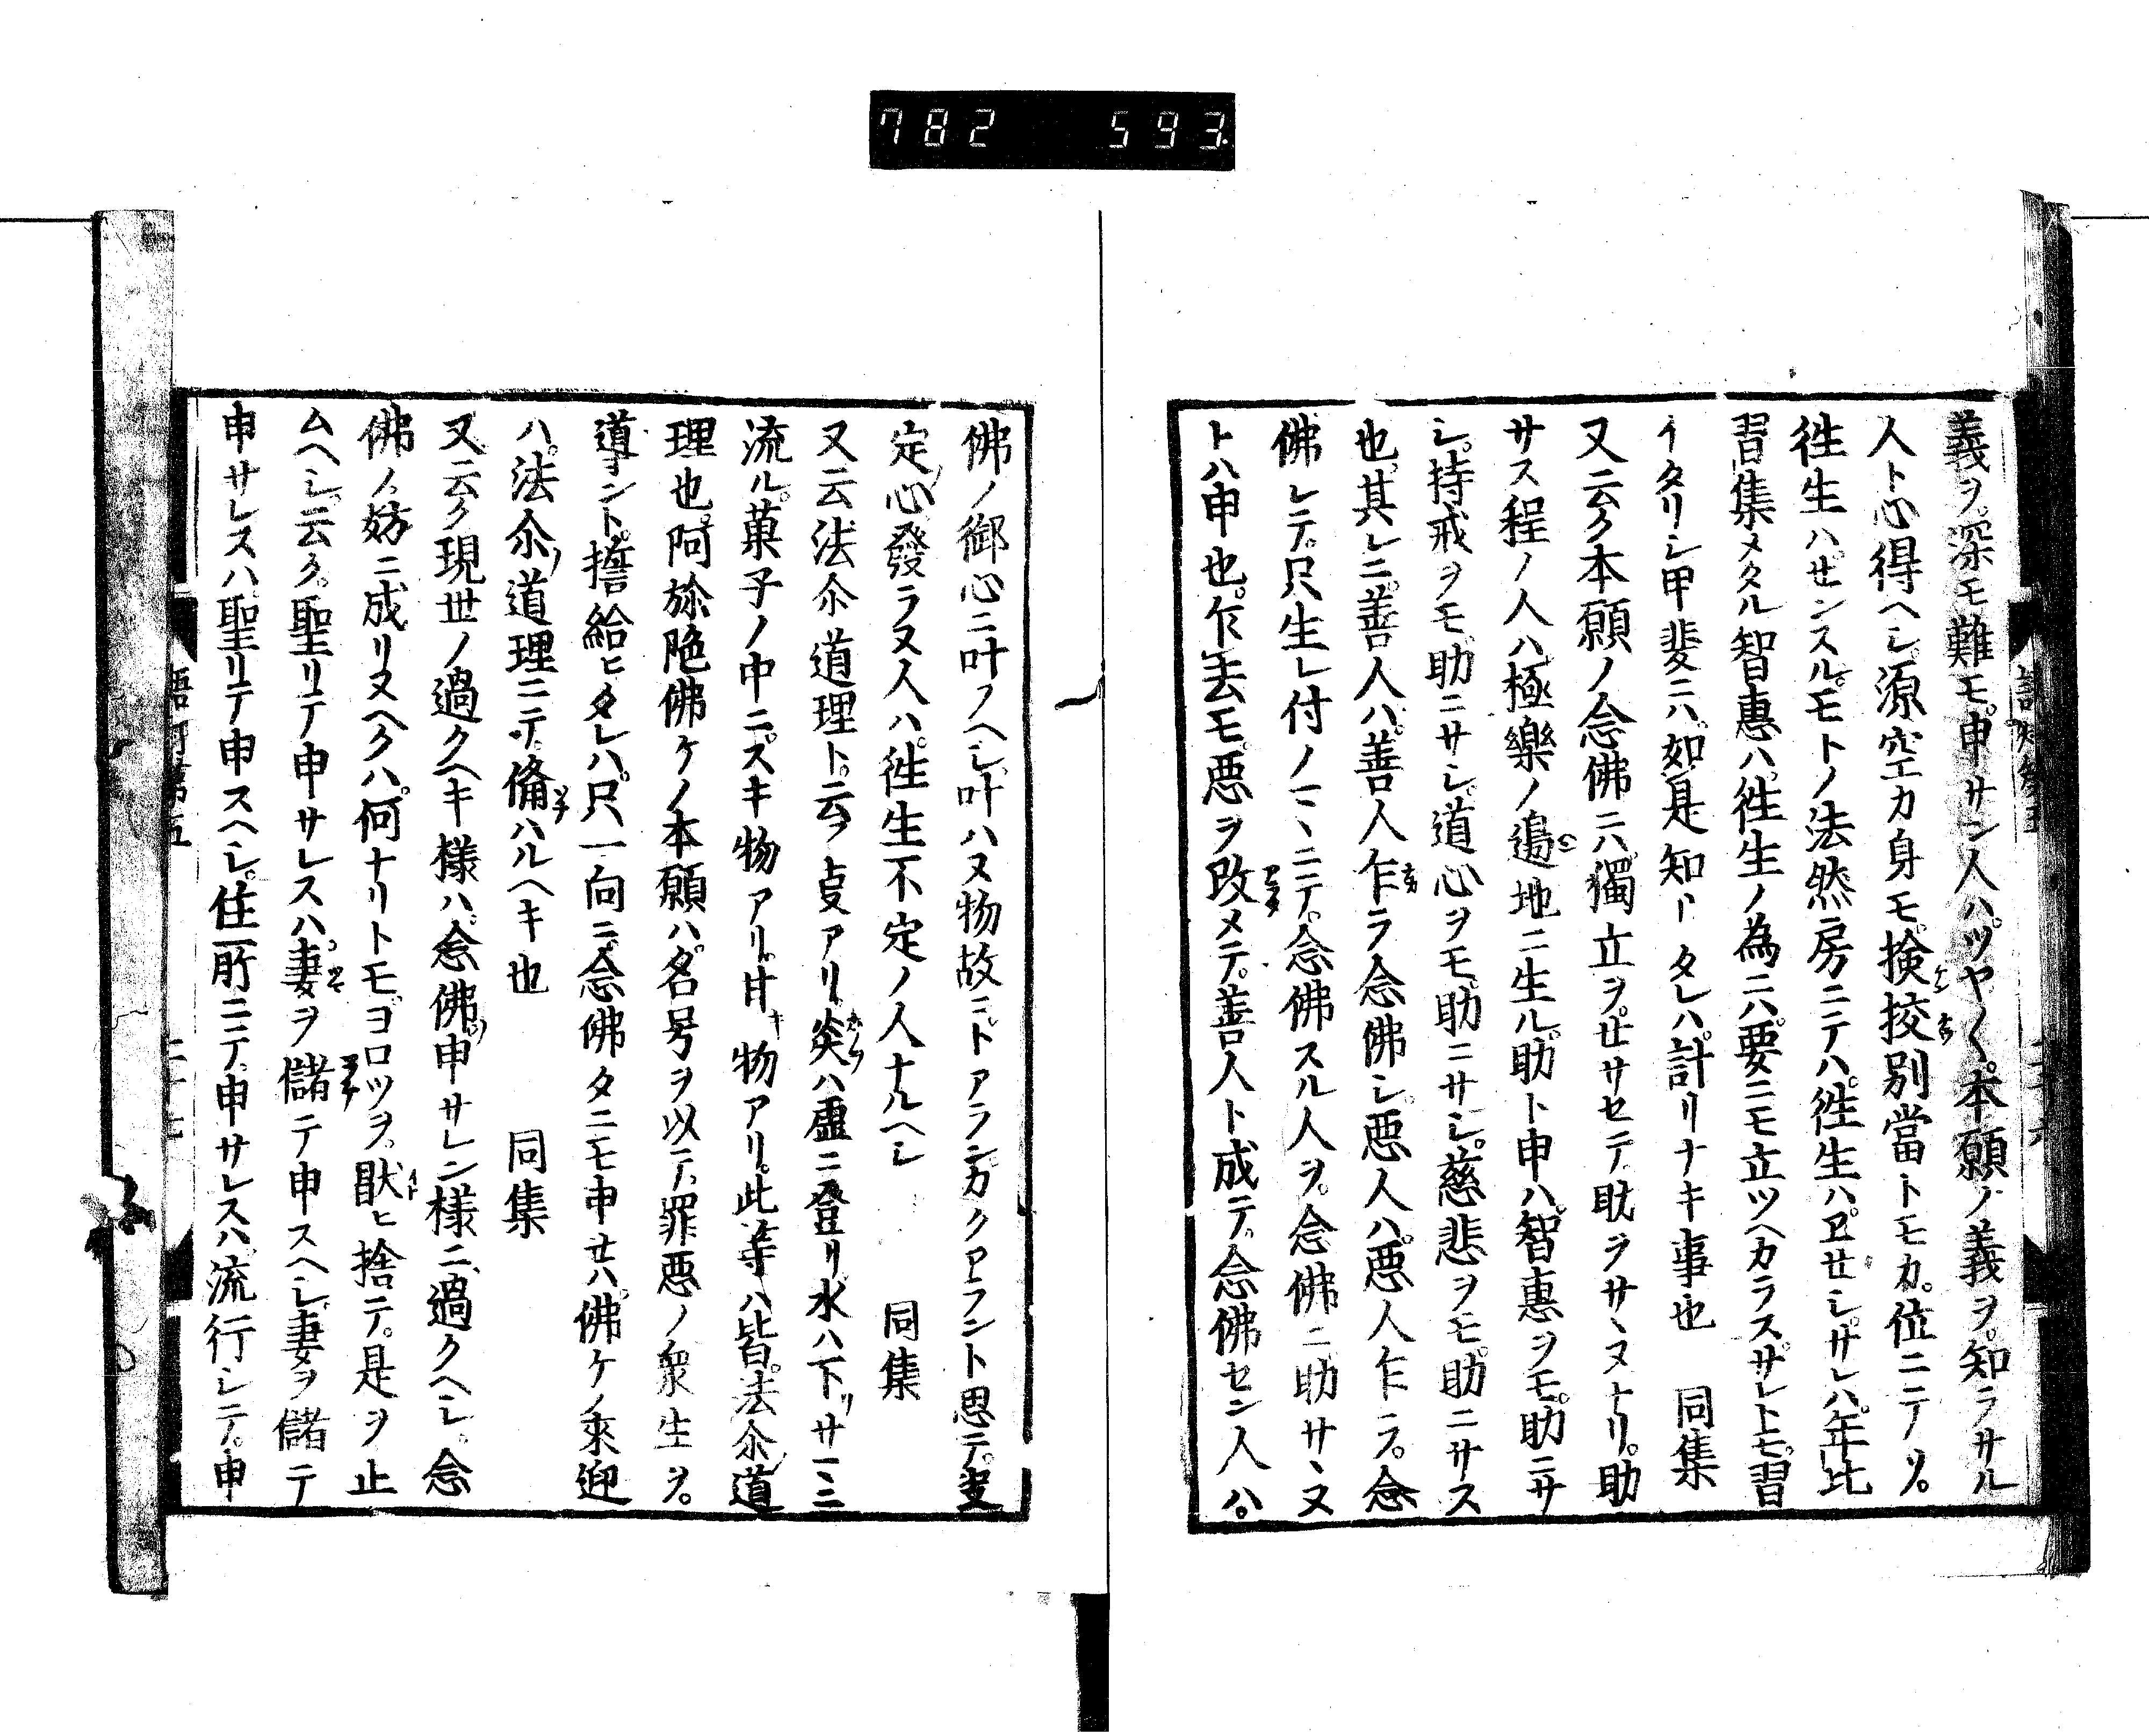 782 593
義ヲ。深モ難モ。申サン人ハ。ツヤ〱。本願ノ義ヲ。知ラサル
人ト心得ヘシ。源空カ身モ。検挍別當トモカ。位ニテノソ。
徃生ハ。せンスル。モトノ法然房ニテハ。徃生ハヱせシ。サレハ。年比
習集メタル智惠ハ。徃生ノ為ニハ。要ニモ立ツヘカラス。サレトモ。習
イタリシ甲斐ニハ。如是知タレハ。計リナキ事也 同集
又云ク本願ノ念佛ニハ。獨立ヲ。せサセテ。助ヲサヽヌナリ。助
サス程ノ人ハ極樂ノ邉地ニ生ル。助ト申ハ。智惠ヲモ。助ニサ
シ。持戒ヲモ。助ニサシ。道心ヲモ。助ニサシ。慈悲ヲモ。助ニサス
也。其レニ。善人ハ。善人乍ラ念佛シ。悪人ハ。悪人乍ラ。念
佛シテ。只生レ付ノマヽニテ。念佛スル人ヲ。念佛ニ助サヽヌ
トハ申也。乍去モ。悪ヲ改メテ。善人ト成テ。念佛セン人ハ。
佛ノ御心ニ叶ノヘシ。叶ハヌ物故ニ。トアランカクアラント思テ。决
定心發ラヌ人ハ。徃生不定ノ人ナルヘシ 同集
又云法尒道理ト。云フ亊アリ。炎ハ虚ニ登リ水ハ下リサマニ
流ル。菓子ノ中ニ。スキ物アリ。甘キ物アリ。此等ハ皆。法尒道
理也。阿旀陁佛ケノ本願ハ。名号ヲ以テ。罪悪ノ衆生ヲ。
導ント。誓給ヒタレハ。只一向ニ。念佛タニモ申せハ。佛ケノ來迎
ハ。法尒道理ニテ。偹ハルヘキ也 同集
又云ク現世ノ過クヘキ様ハ。念佛申サレン様ニ。過クヘシ。念
佛ノ妨ニ成リヌヘクハ。何ナリトモ。ヨロツヲ。猒ヒ捨テ。是ヲ止
ムヘシ。云ク。聖リテ申サレスハ。妻ヲ儲テ申スヘシ。妻ヲ儲テ
申サレスハ。聖リテ申スヘシ。住所ニテ。申サレスハ。流行シテ。申